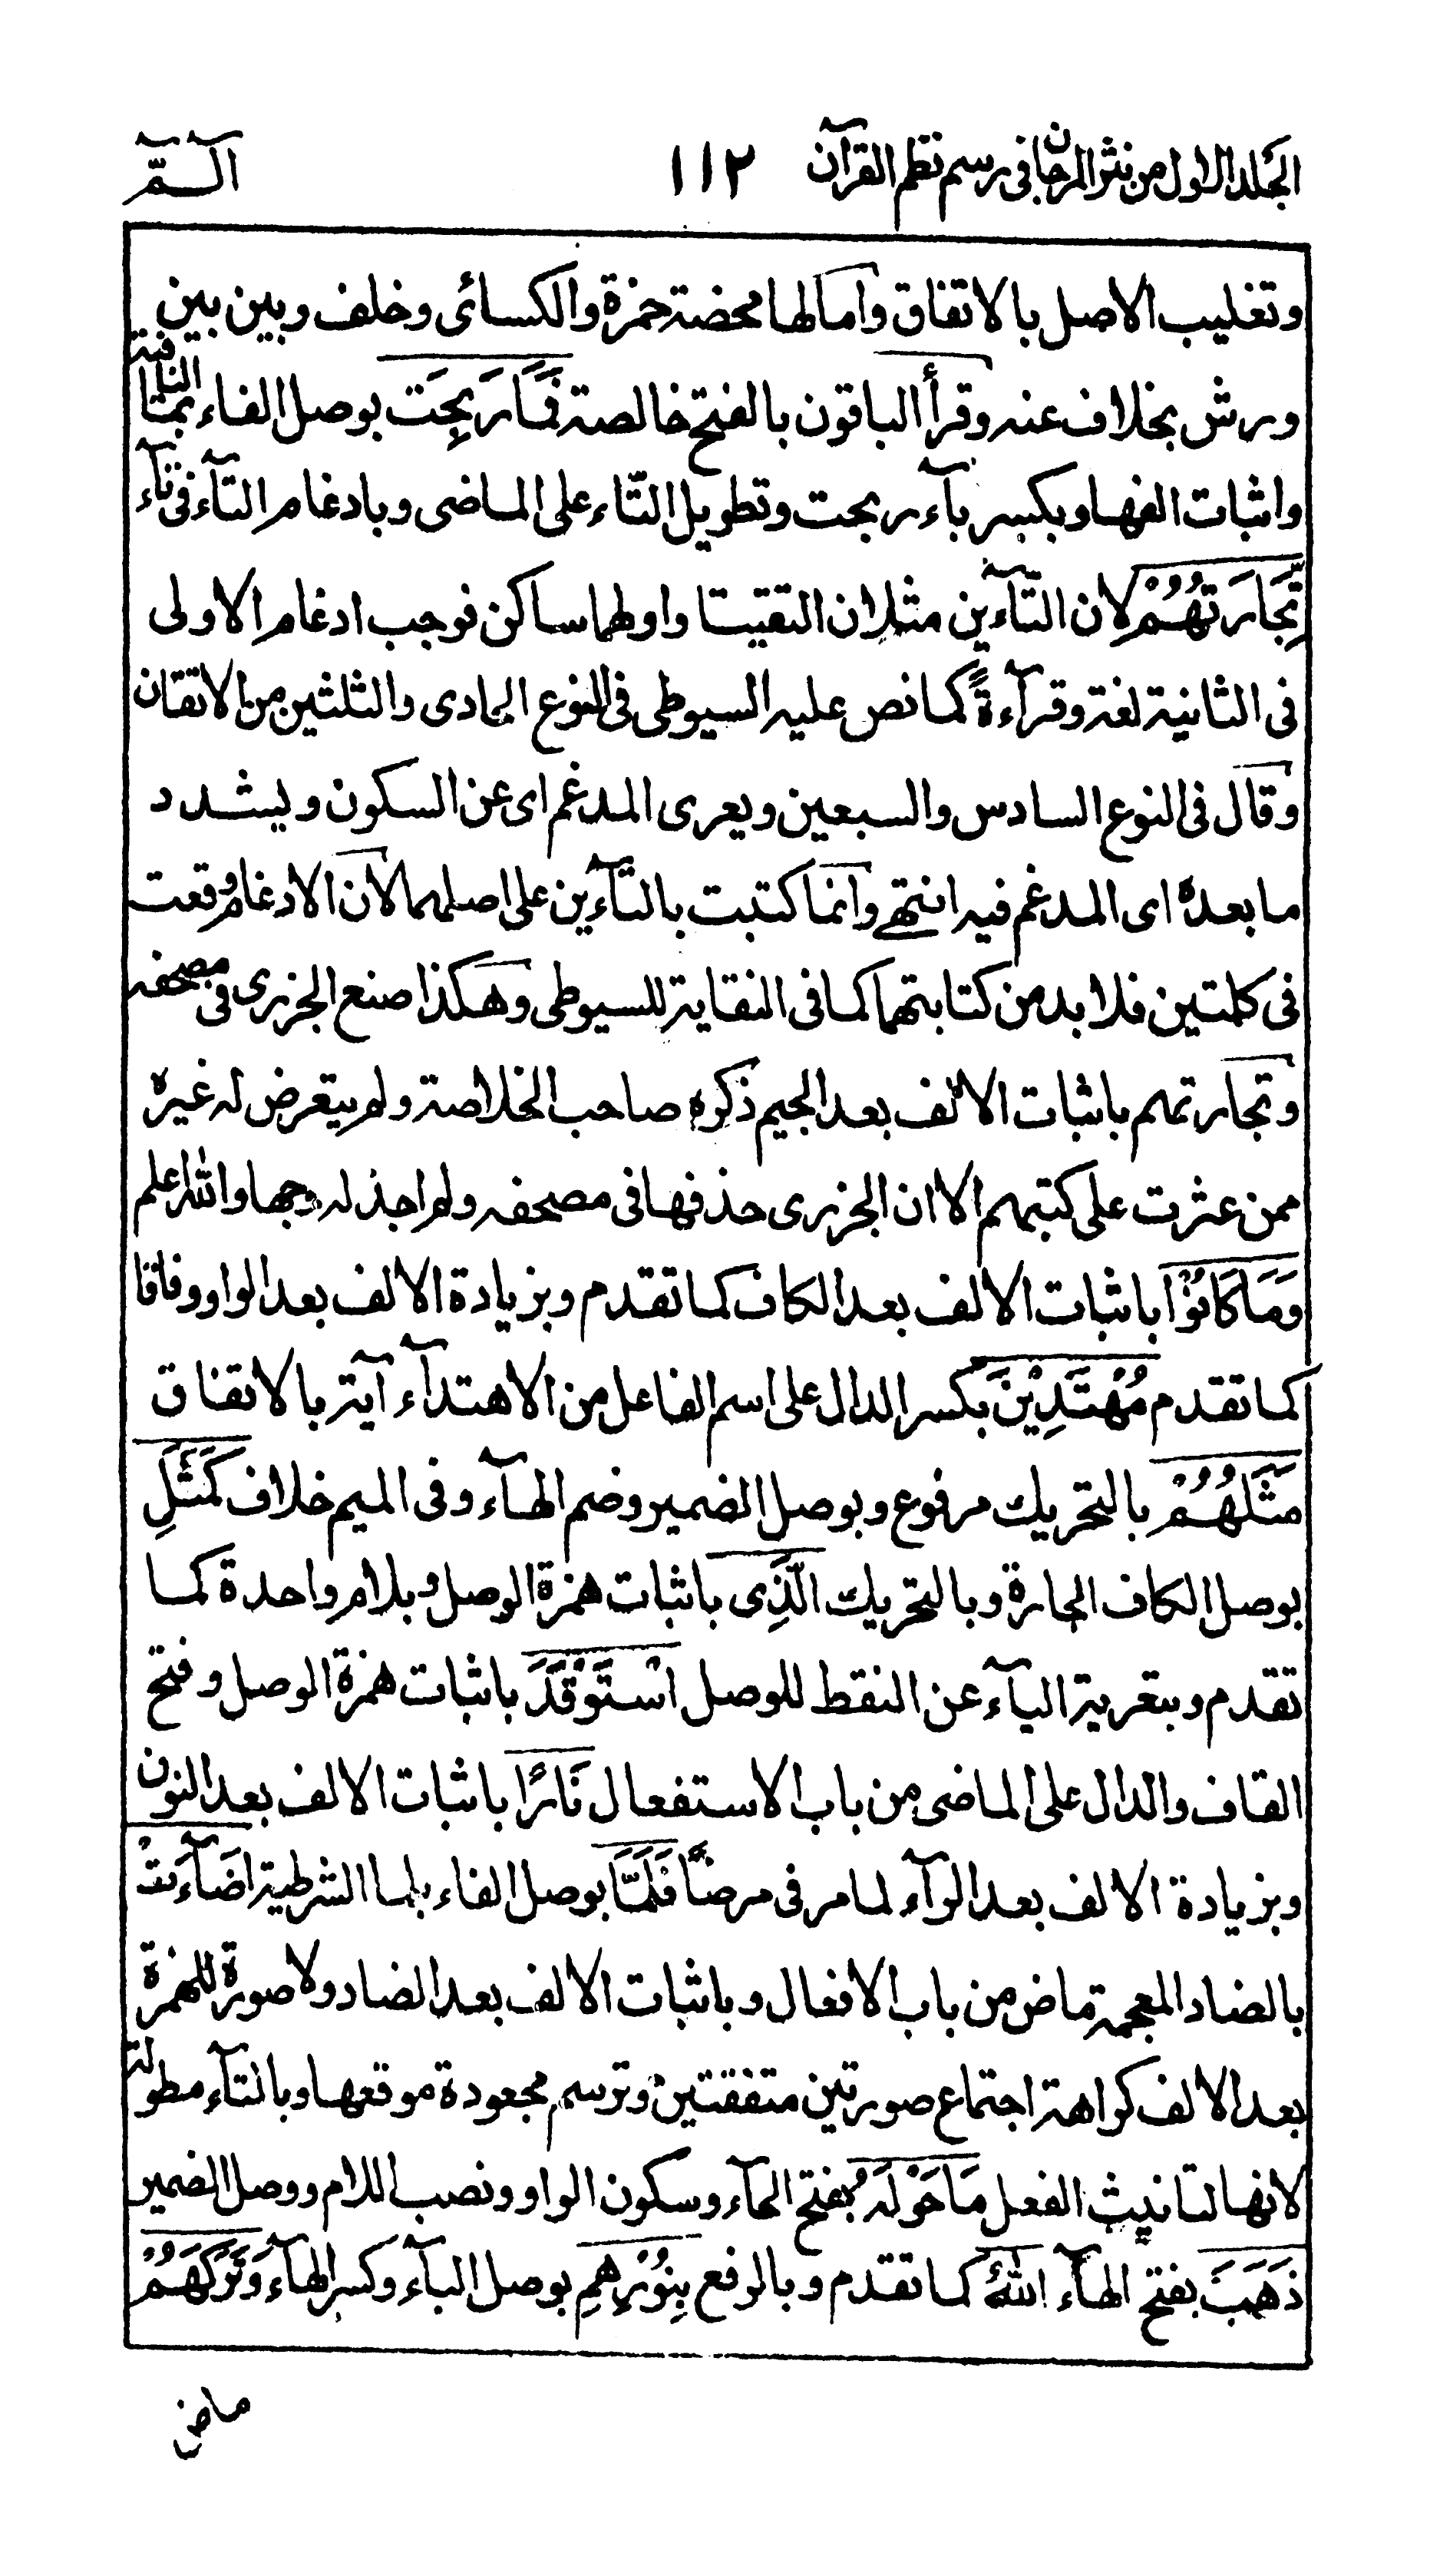 الجلد الاول من نثر المرجان فى رسم نظم القرآن ١١٢ الـمّٓ
وتغليب الاصل بالاتفاق وامالها محضة حمزة والكسائى وخلف وبين بين
ورش بخلاف عنه وقرأ الباقون بالفتح خالصة فَمَا رَبِحَت بوصل الفاء بما النافية
واثبات الفها وبكسر بآء ربحت وتطويل التّاء على الماضى وبادغام التآء فى تآء
تِّجَارَتُهُمْ لان التّآءين مثلان التقيتا واولهما ساكن فوجب ادغام الاولى
فى الثانية لغة وقرآءةً كما نص عليه السيوطى فى النوع الحادى والثلثين من الاتقان
وقال فى النوع السادس والسبعين ويعرى المدغم اى عن السكون ويشدد
ما بعده اى المدغم فيه انتهى وانما كتبت بالتآءين على اصلهما لان الادغام وقعت
فى كلمتين فلا بد من كتابتهما كما فى النقاية للسيوطى وهكذا صنع الجزرى فى مصحفه
وتجارتهم باثبات الالف بعد الجيم ذكره صاحب الخلاصة ولم يتعرض له غيره
ممن عثرت على كتبهم الا ان الجزرى حذفها فى مصحفه ولم اجد له وجها والله اعلم
وَمَا كَانُوْا باثبات الالف بعد الكاف كما تقدم وبزيادة الالف بعد الواو وفاقا
كما تقدم مُهْتَدِيْنَ بكسر الدال على اسم الفاعل من الاهتدآء آية بالاتفاق
مَثَلُهُمْ بالتحريك مرفوع وبوصل الضمير وضم الهآء وفى الميم خلاف كَمَثَلِ
بوصل الكاف الجارة وبالتحريك الَّذِى باثبات همزة الوصل وبلام واحدة كما
تقدم وبتعرية اليآء عن النقط للوصل اسْتَوْقَدَ باثبات همزة الوصل وفتح
القاف والدال على الماضى من باب الاستفعال نَارًا باثبات الالف بعد النون
وبزيادة الالف بعد الرآء لما مر فى مرضًا فَلَمَّا بوصل الفاء بلما الشرطية اَضَآءَتْ
بالضاد المعجمة ماض من باب الافعال وباثبات الالف بعد الضاد ولا صورة للهمزة
بعد الالف كراهة اجتماع صورتين متفقتين وترسم مجعودة موقعها وبالتآء مطولة
لانها لتانيث الفعل مَا حَوْلَهُ بفتح الحآء وسكون الواو ونصب اللام ووصل الضمير
ذَهَبَ بفتح الهآء اللهُ كما تقدم وبالرفع بِنُوْرِهِمِ بوصل البآء وكسر الهآء وَتَرَكَهُمْ
ماض